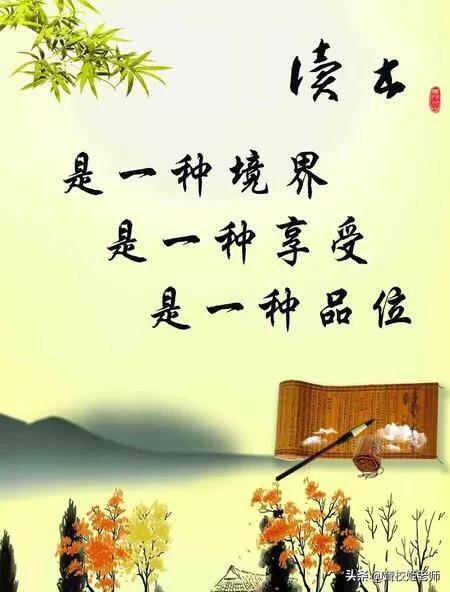 读书
是一种境界
是一种享受
是一种品位
头条 @老师